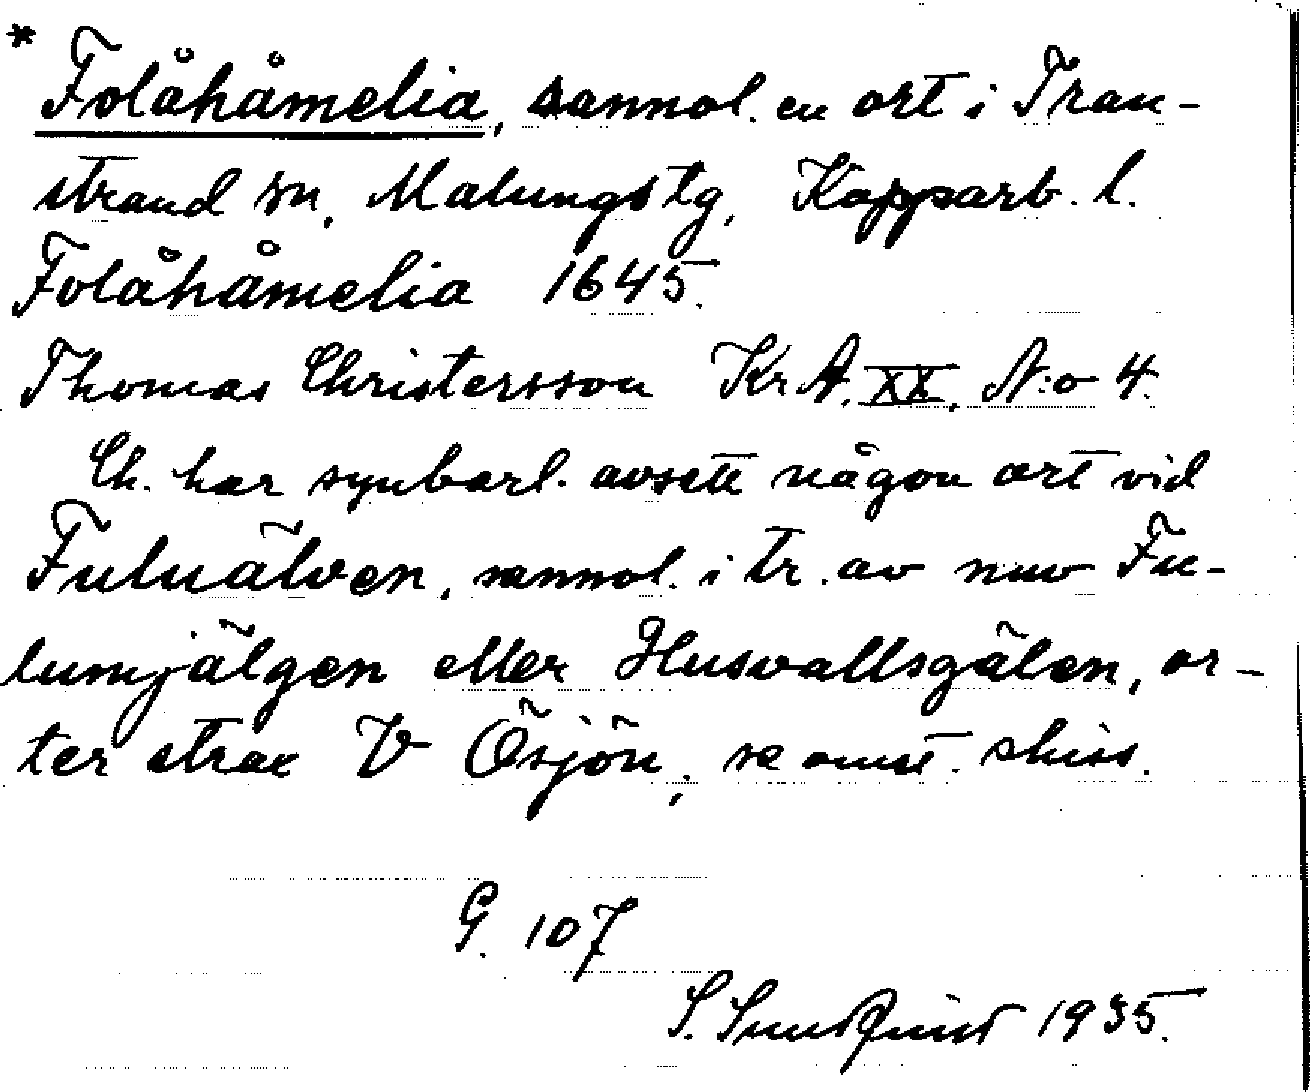 * Folåhåmelia, sannol. en ort i Tran-
strand sn, Malungs tg, Kopparb. l.
Folåhåmelia 1645.
Thomas Christersson Kr A. XX, N:o 4.
Ch. har synbarl. avsett någon ort vid
Fuluälven, sannol. i tr. av nuv Fu-
lumjälgen eller Husvallsgälen, or-
ter strax V Ösjön, se omst. skiss.
G. 107
S. Sundquist 1935.